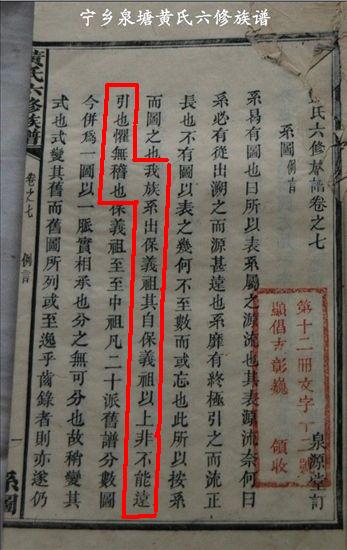 宁乡泉塘黄氏六修族谱
氏六修族譜卷之七
泉源堂訂
系圖例言
系易有圖也曰所以表系屬之源流也其表源流奈何曰
系必有從出溯之而源甚遠也系靡有終極引之而流正
長也不有圖以表之幾何不至數而或忘也此所以按系
而圖之也我族系出保義祖其自保義祖以上非不能遠
引也懼無稽也保義祖至至中祖凡二十派舊譜分數圖
今併爲一圖以一脈實相承也分之無可分也故稍變其
式也式變其舊而舊圖所列或至逸乎齒錄者則亦遂仍
黃氏六修族譜
卷之七
例言
一
系圖
第十二冊文字十二號
顯倡吉彰巍
領收